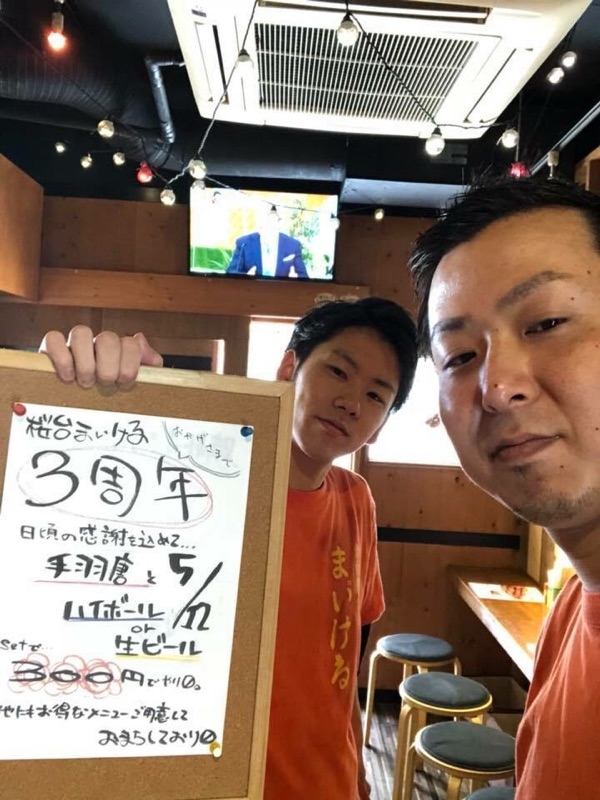 桜台まいける
おかげさまで
3周年
日頃の感謝を込めて...
手羽唐と
5/17
ハイボール
or
生ビール
setで...
300円でやり〼。
他にもお得なメニューご用意して
おまちしており〼
まいける